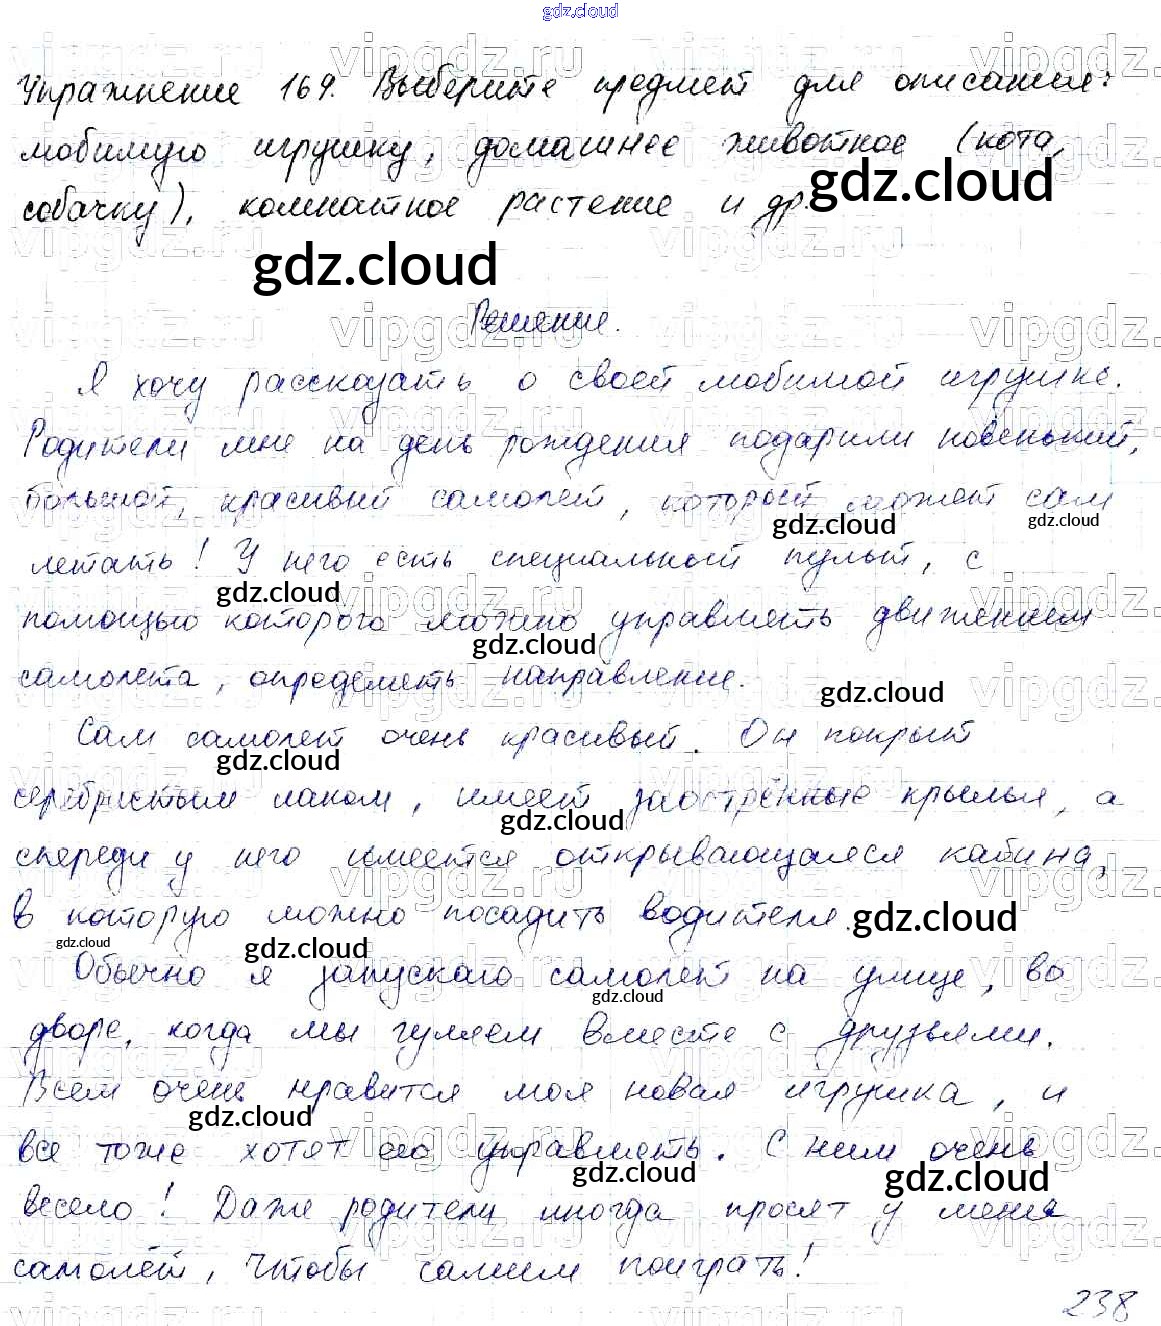 gdz.cloud
Упражнение 169. Выберите предмет для описания:
любимую игрушку, домашнее животное (кота,
собачку), комнатное растение и др.
gdz.cloud
gdz.cloud
Решение.
Я хочу рассказать о своей любимой игрушке.
Родители мне на день рождения подарили новенький,
большой, красивый самолет, который может сам
gdz.cloud gdz.cloud
летать! У него есть специальный пульт, с
gdz.cloud
помощью которого можно управлять движением
gdz.cloud
самолета, определять направление.
gdz.cloud
Сам самолет очень красивый. Он покрыт
gdz.cloud
серебристым лаком, имеет заострённые крылья, а
gdz.cloud
спереди у него имеется открывающаяся кабина,
в которую можно посадить водителя.
gdz.cloud
gdz.cloud gdz.cloud
Обычно я запускаю самолет на улице, во
gdz.cloud
дворе, когда мы гуляем вместе с друзьями.
Всем очень нравится моя новая игрушка, и
gdz.cloud
все тоже хотят ею управлять. С ним очень
gdz.cloud gdz.cloud
весело! Даже родители иногда просят у меня
самолёт, чтобы самим поиграть!
238